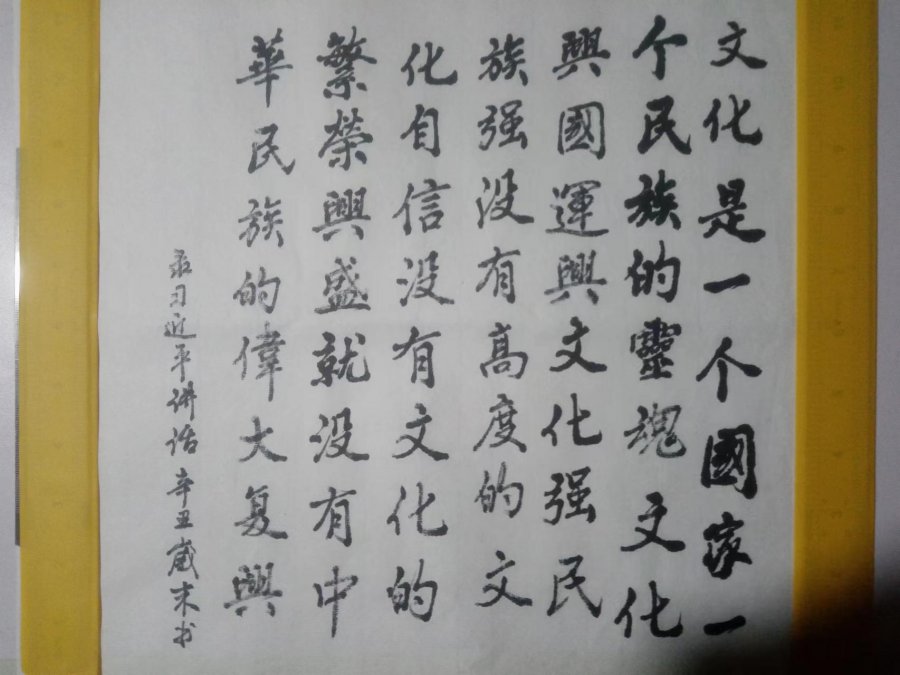 文化是一个國家一
个民族的靈魂文化
興國運興文化强民
族强没有高度的文
化自信没有文化的
繁榮興盛就没有中
華民族的偉大复興
录习近平讲话辛丑歲末书